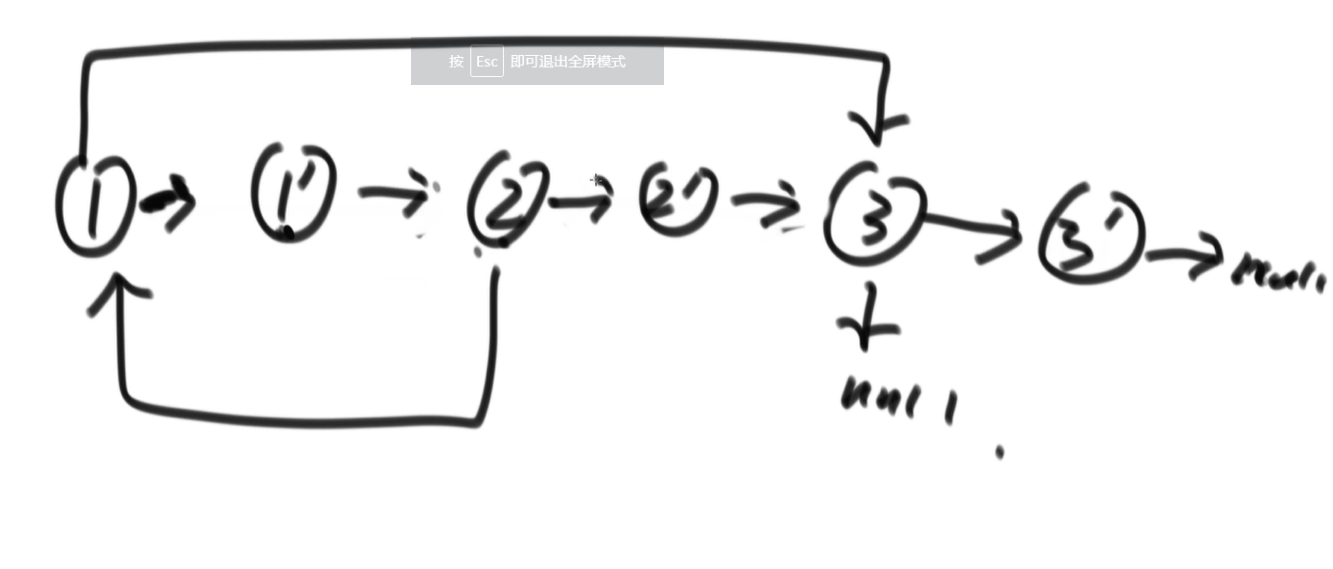 按 Esc 即可退出全屏模式
1 1' 2 2' 3 3' null
null